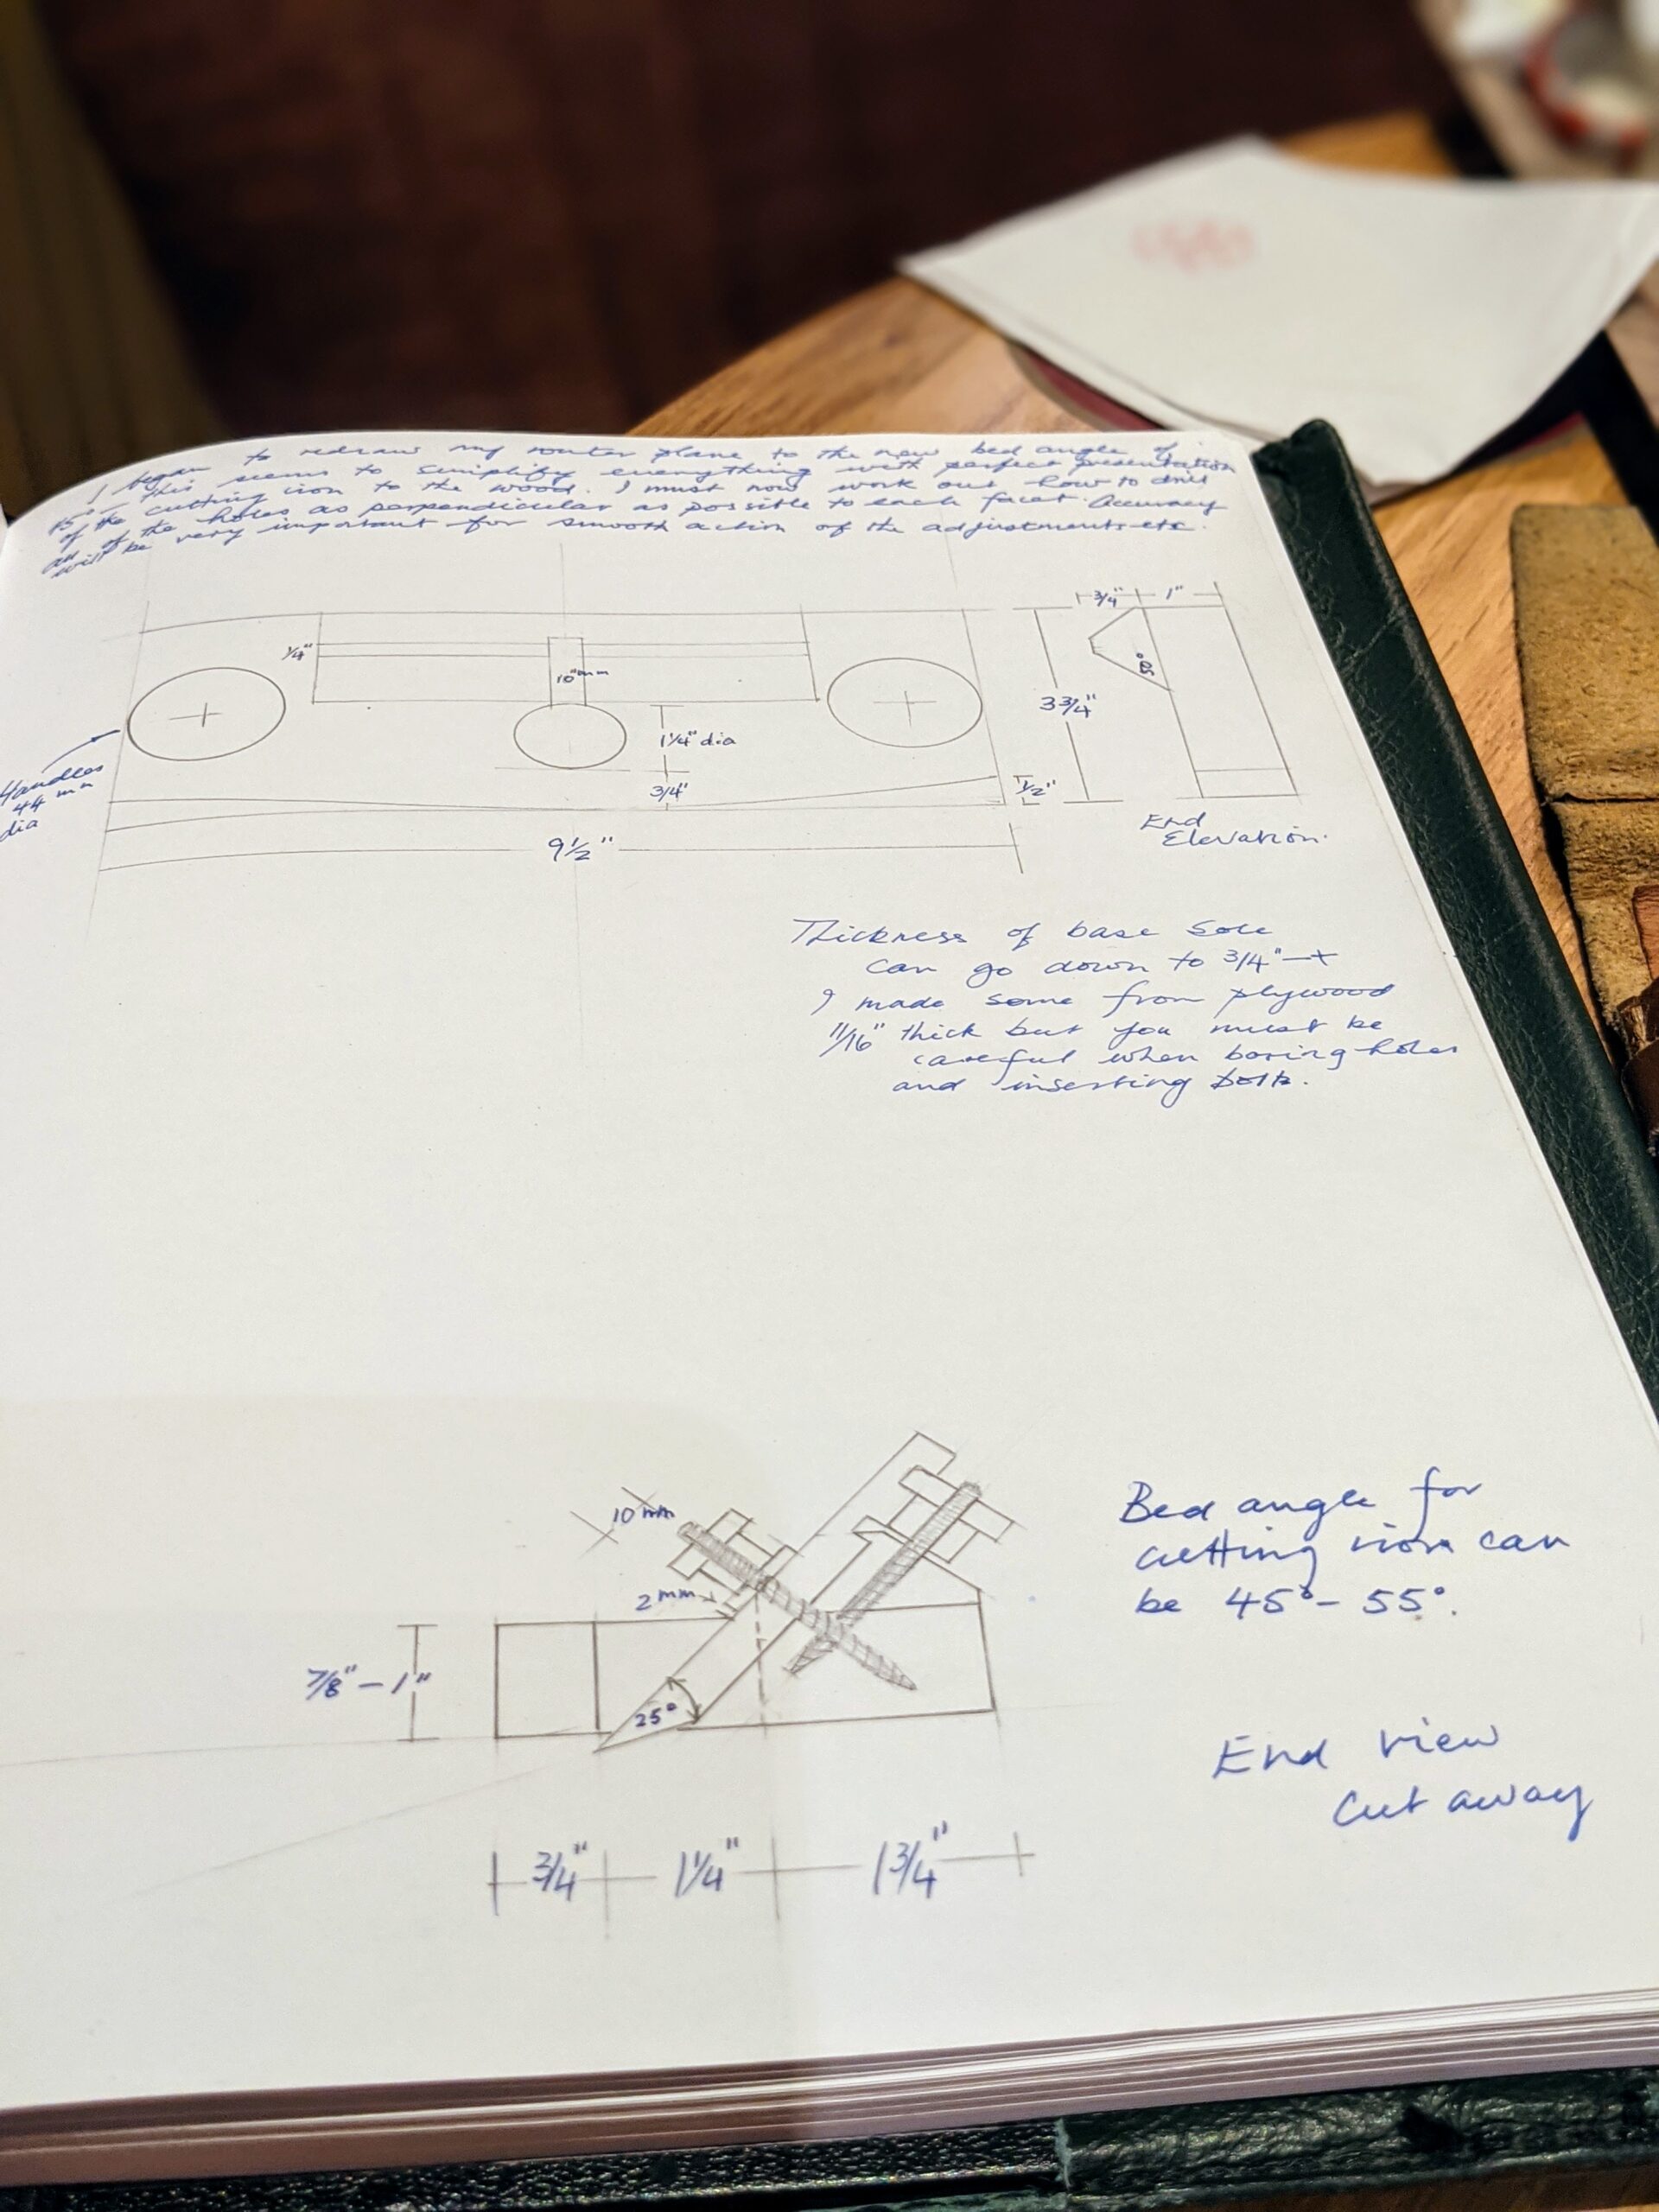 I began to redraw my router plane to the new bed angle of
This seems to simplify everything with perfect presentation
of the cutting iron to the wood. I must now work out how to drill
all of the holes as perpendicular as possible to each facet. Accuracy
will be very important for smooth action of the adjustments etc.
3/4" 1"
1/4"
10mm
3 3/4"
1 1/4" dia
Handles
44 mm
dia
3/4"
1/2"
9 1/2"
End
Elevation.
Thickness of base sole
can go down to 3/4"
I made some from plywood
11/16" thick but you must be
careful when boring holes
and inserting bolts.
10 mm
2 mm
7/8" – 1"
25°
Bed angle for
cutting iron can
be 45° – 55°.
End view
cut away
3/4" 1 1/4" 1 3/4"